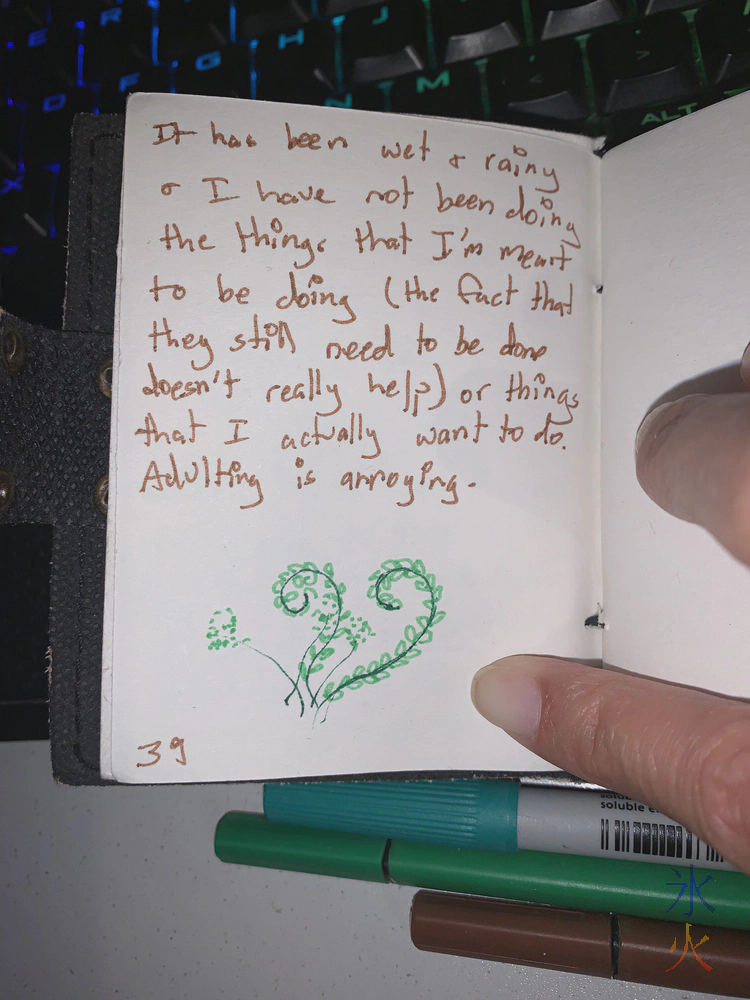 E R J
D F G H
N M < >
X ALT
It has been wet & rainy
& I have not been doing
the things that I'm meant
to be doing (the fact that
they still need to be done
doesn't really help) or things
that I actually want to do.
Adulting is annoying.
39
soluble
氷
火